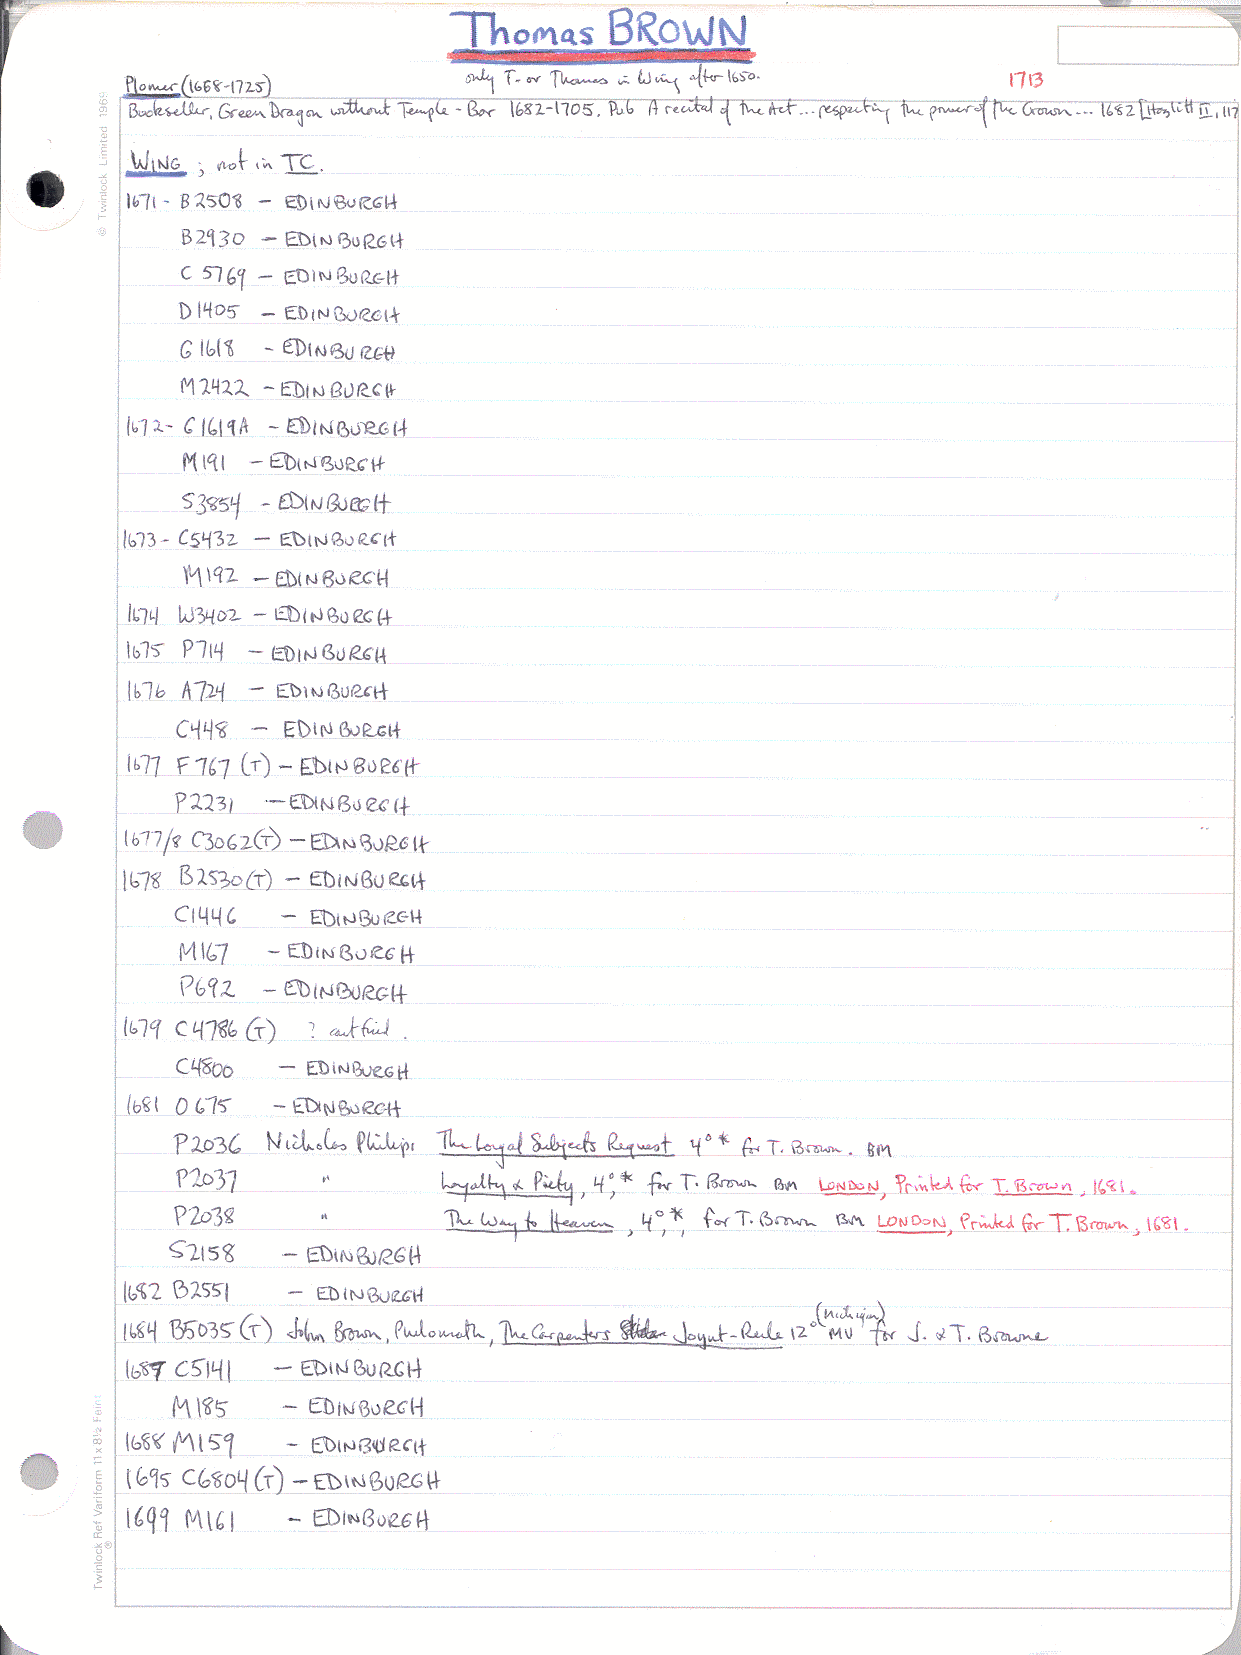 Thomas BROWN
only T- or Thomas in Wing after 1650.
1713
Plomer (1668-1725)
Bookseller, Green Dragon without Temple-Bar 1682-1705. Pub A recital of the Act... respecting the power of the Crown... 1682 [Hazlitt II, 117
WING ; not in TC.
1671 - B2508 - EDINBURGH
B2930 - EDINBURGH
C5769 - EDINBURGH
D1405 - EDINBURGH
G1618 - EDINBURGH
M2422 - EDINBURGH
1672 - G1619A - EDINBURGH
M191 - EDINBURGH
S3854 - EDINBURGH
1673 - C5432 - EDINBURGH
M192 - EDINBURGH
1674 W3402 - EDINBURGH
1675 P714 - EDINBURGH
1676 A724 - EDINBURGH
C448 - EDINBURGH
1677 F767 (T) - EDINBURGH
P2231 - EDINBURGH
1677/8 C3062 (T) - EDINBURGH
1678 B2530 (T) - EDINBURGH
C1446 - EDINBURGH
M167 - EDINBURGH
P692 - EDINBURGH
1679 C4786 (T) ? cant find.
C4800 - EDINBURGH
1681 O675 - EDINBURGH
P2036 Nicholas Philips The Loyal Subjects Request 4° * for T. Brown. BM
P2037 " Loyalty & Piety, 4°,* for T. Brown BM LONDON, Printed for T. Brown, 1681.
P2038 " The Way to Heaven, 4°,*, for T. Brown BM LONDON, Printed for T. Brown, 1681.
S2158 - EDINBURGH
1682 B2551 - EDINBURGH
(Michigan)
1684 B5035 (T) John Brown, Philomath, The Carpenters Joynt-Rule 12° MU for J. & T. Browne
1687 C5141 - EDINBURGH
M185 - EDINBURGH
1688 M159 - EDINBURGH
1695 C6804 (T) - EDINBURGH
1699 M161 - EDINBURGH
© Twinlock Limited 1969
Twinlock Ref Variform 11 x 8½ Feint